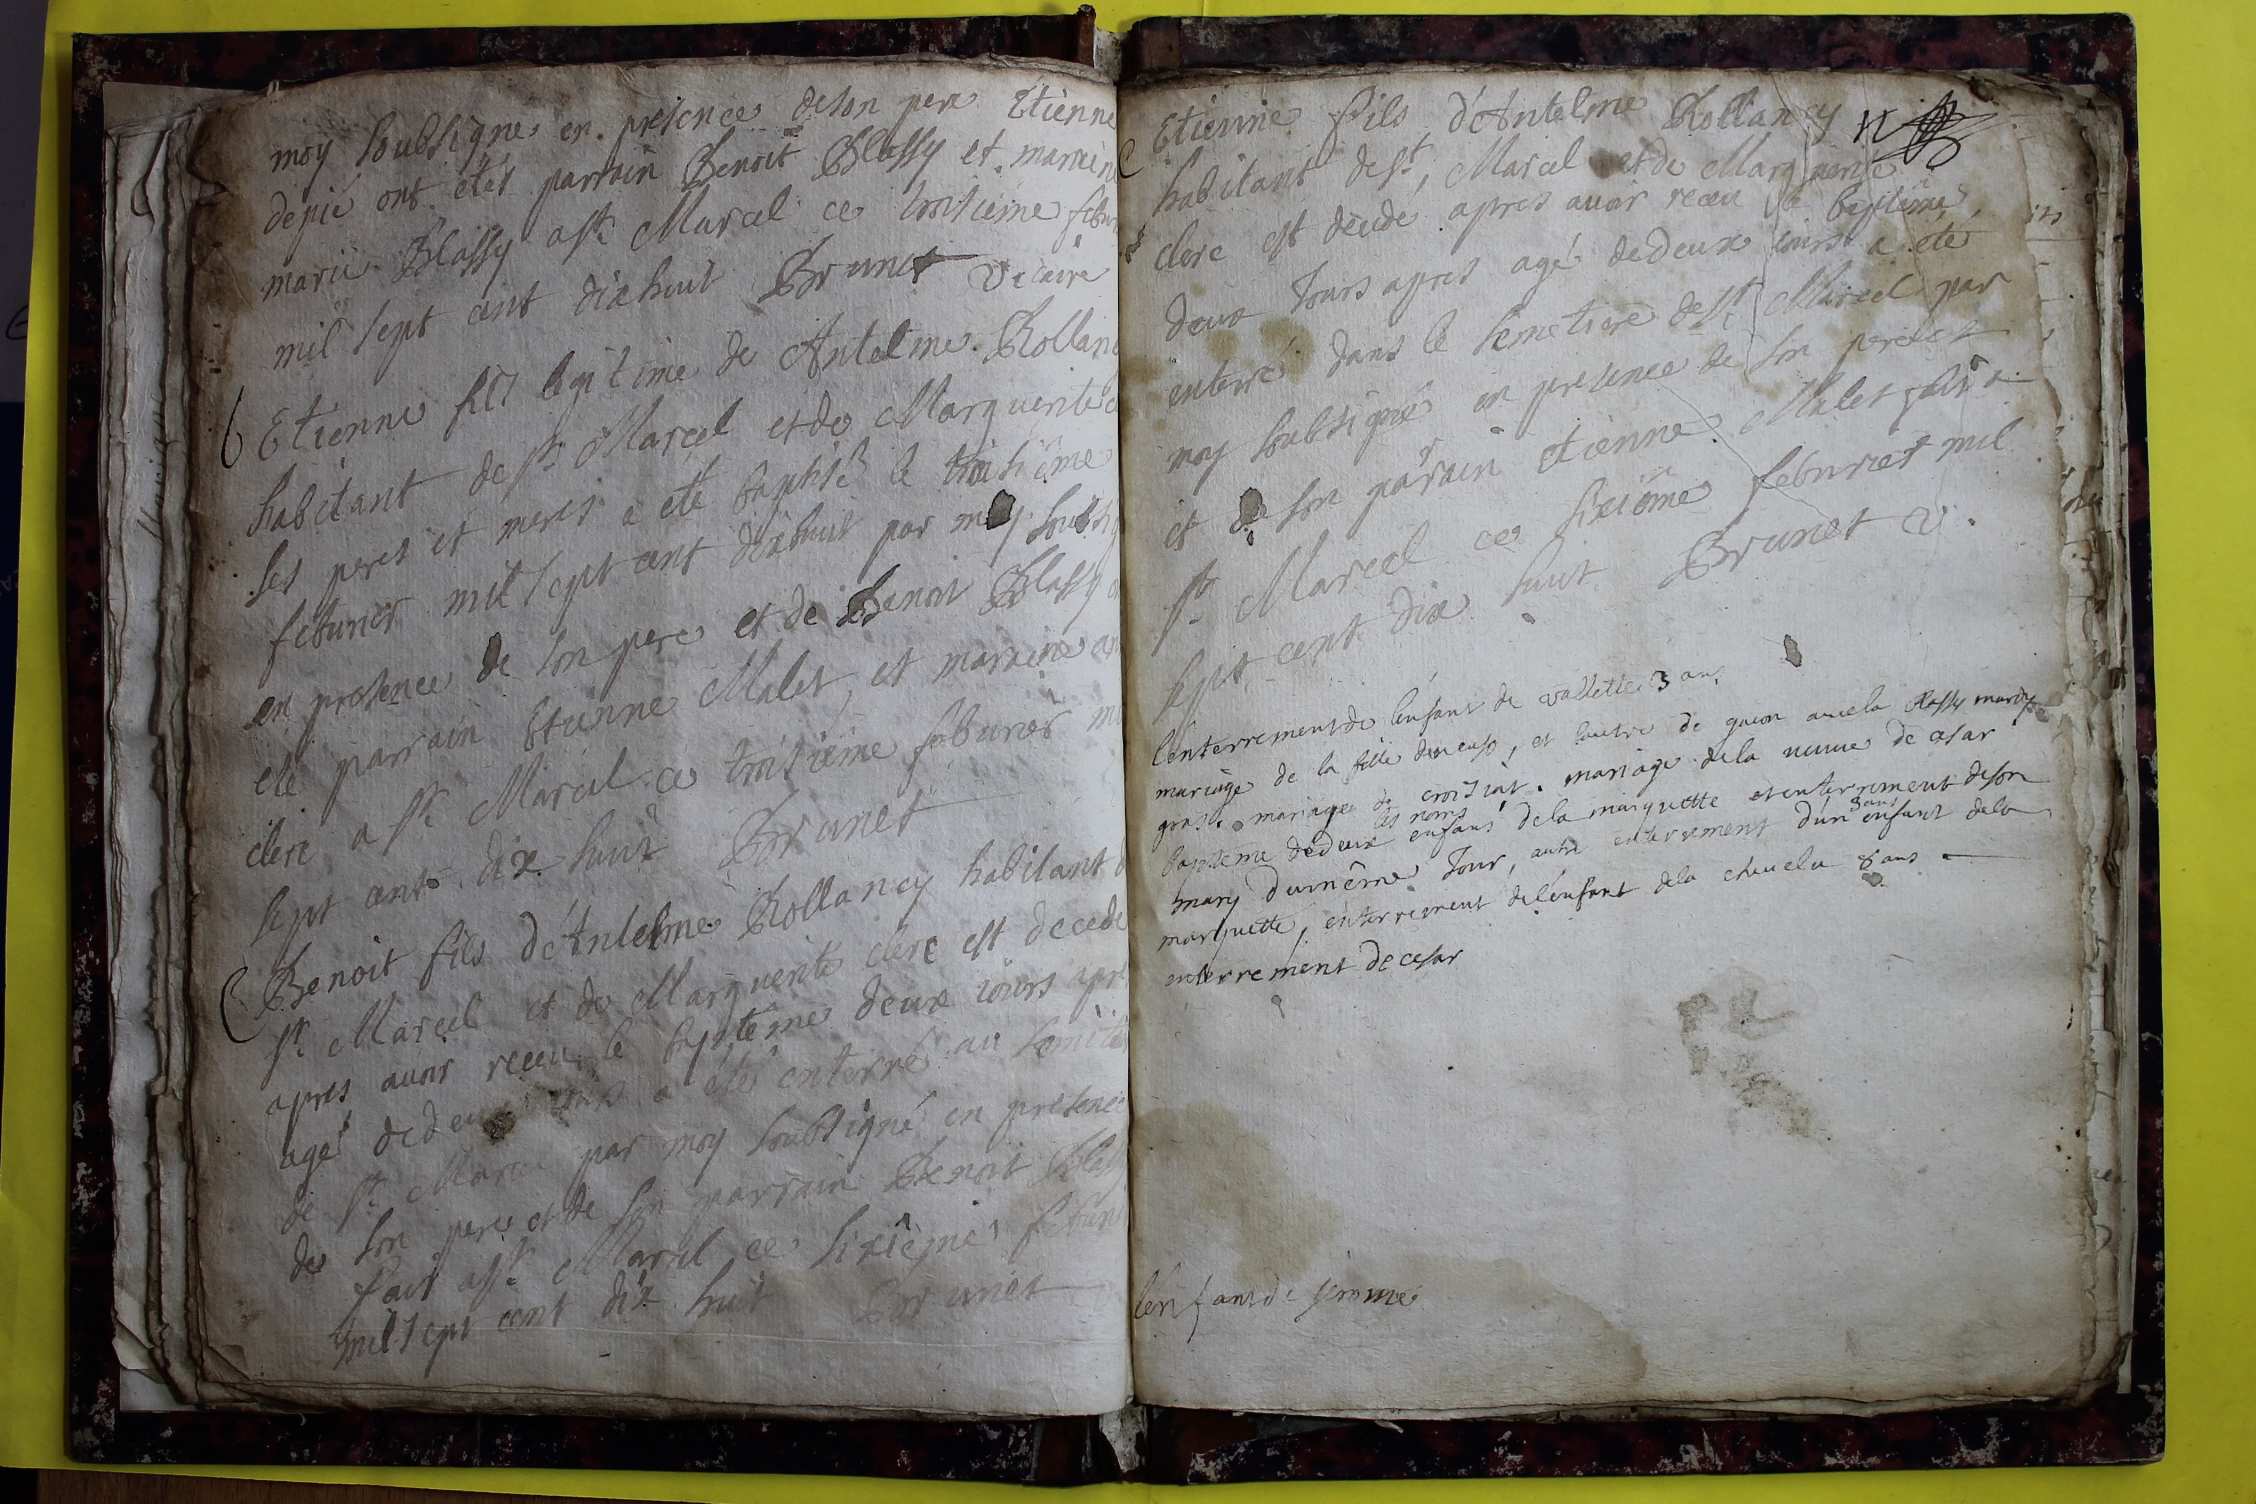 moy soubsigné en presence de son pere Etienne
depié ont étés parrain Benoit Blassy et marraine
marie Blassy a st. Marcel ce troisieme febur
mil sept cent dixhuit Brunet vicaire
Etienne fils legitime de Antelme Rollan
habitant de st. Marcel et de Marguerite c
ses peres et meres a eté baptisé le troisiême
feburier mil sept cent dixhuit par moy soubsig
en presence de son pere et de Benoit Blassy
eté parrain Etienne Malet et marraine
clerc a st. Marcel ce troisieme feburier m
sept cent dix huit Brunet
Benoit fils d'Antelme Rollancy habitant d
st. Marcel et de Marguerite clerc est decedé
apres avoir receu le baptême deux iours apre
agé de deux iours a été enterré au semitie
de st. Marcel par moy soubsigné en presence
de son pere et de son parrain Benoit Blassy
fait a st. Marcel ce sixiême feburi
mil sept cent dix huit Brunet
Etienne fils d'Antelme Rollancy
habitant de st. Marcel et de Marguerite
clerc est decede apres avoir receu le baptême
deux Jours apres agé de deux iours a été
enterré dans le semetiere de st. Marcel par
moy soubsigné en presence de son pere et
et de son parain etienne Malet fait a
st. Marcel ce sixiême feburier mil
sept cent dix huit Brunet v.
l'enterrement de l'enfant de vallette 3 ans
mariage de la fille, et l'autre de guion avec la Blassy
gras. mariage de croisiat. mariage de la veuve de cesar
les noms
baptême de deux enfans de la marquette et enterrement de son
3 ans
mary du même Jour, autre enterrement d'un enfant de la
marquette, enterrement de l'enfant de la chavela 8 ans
enterrement de cesar
l'enfant de jérome